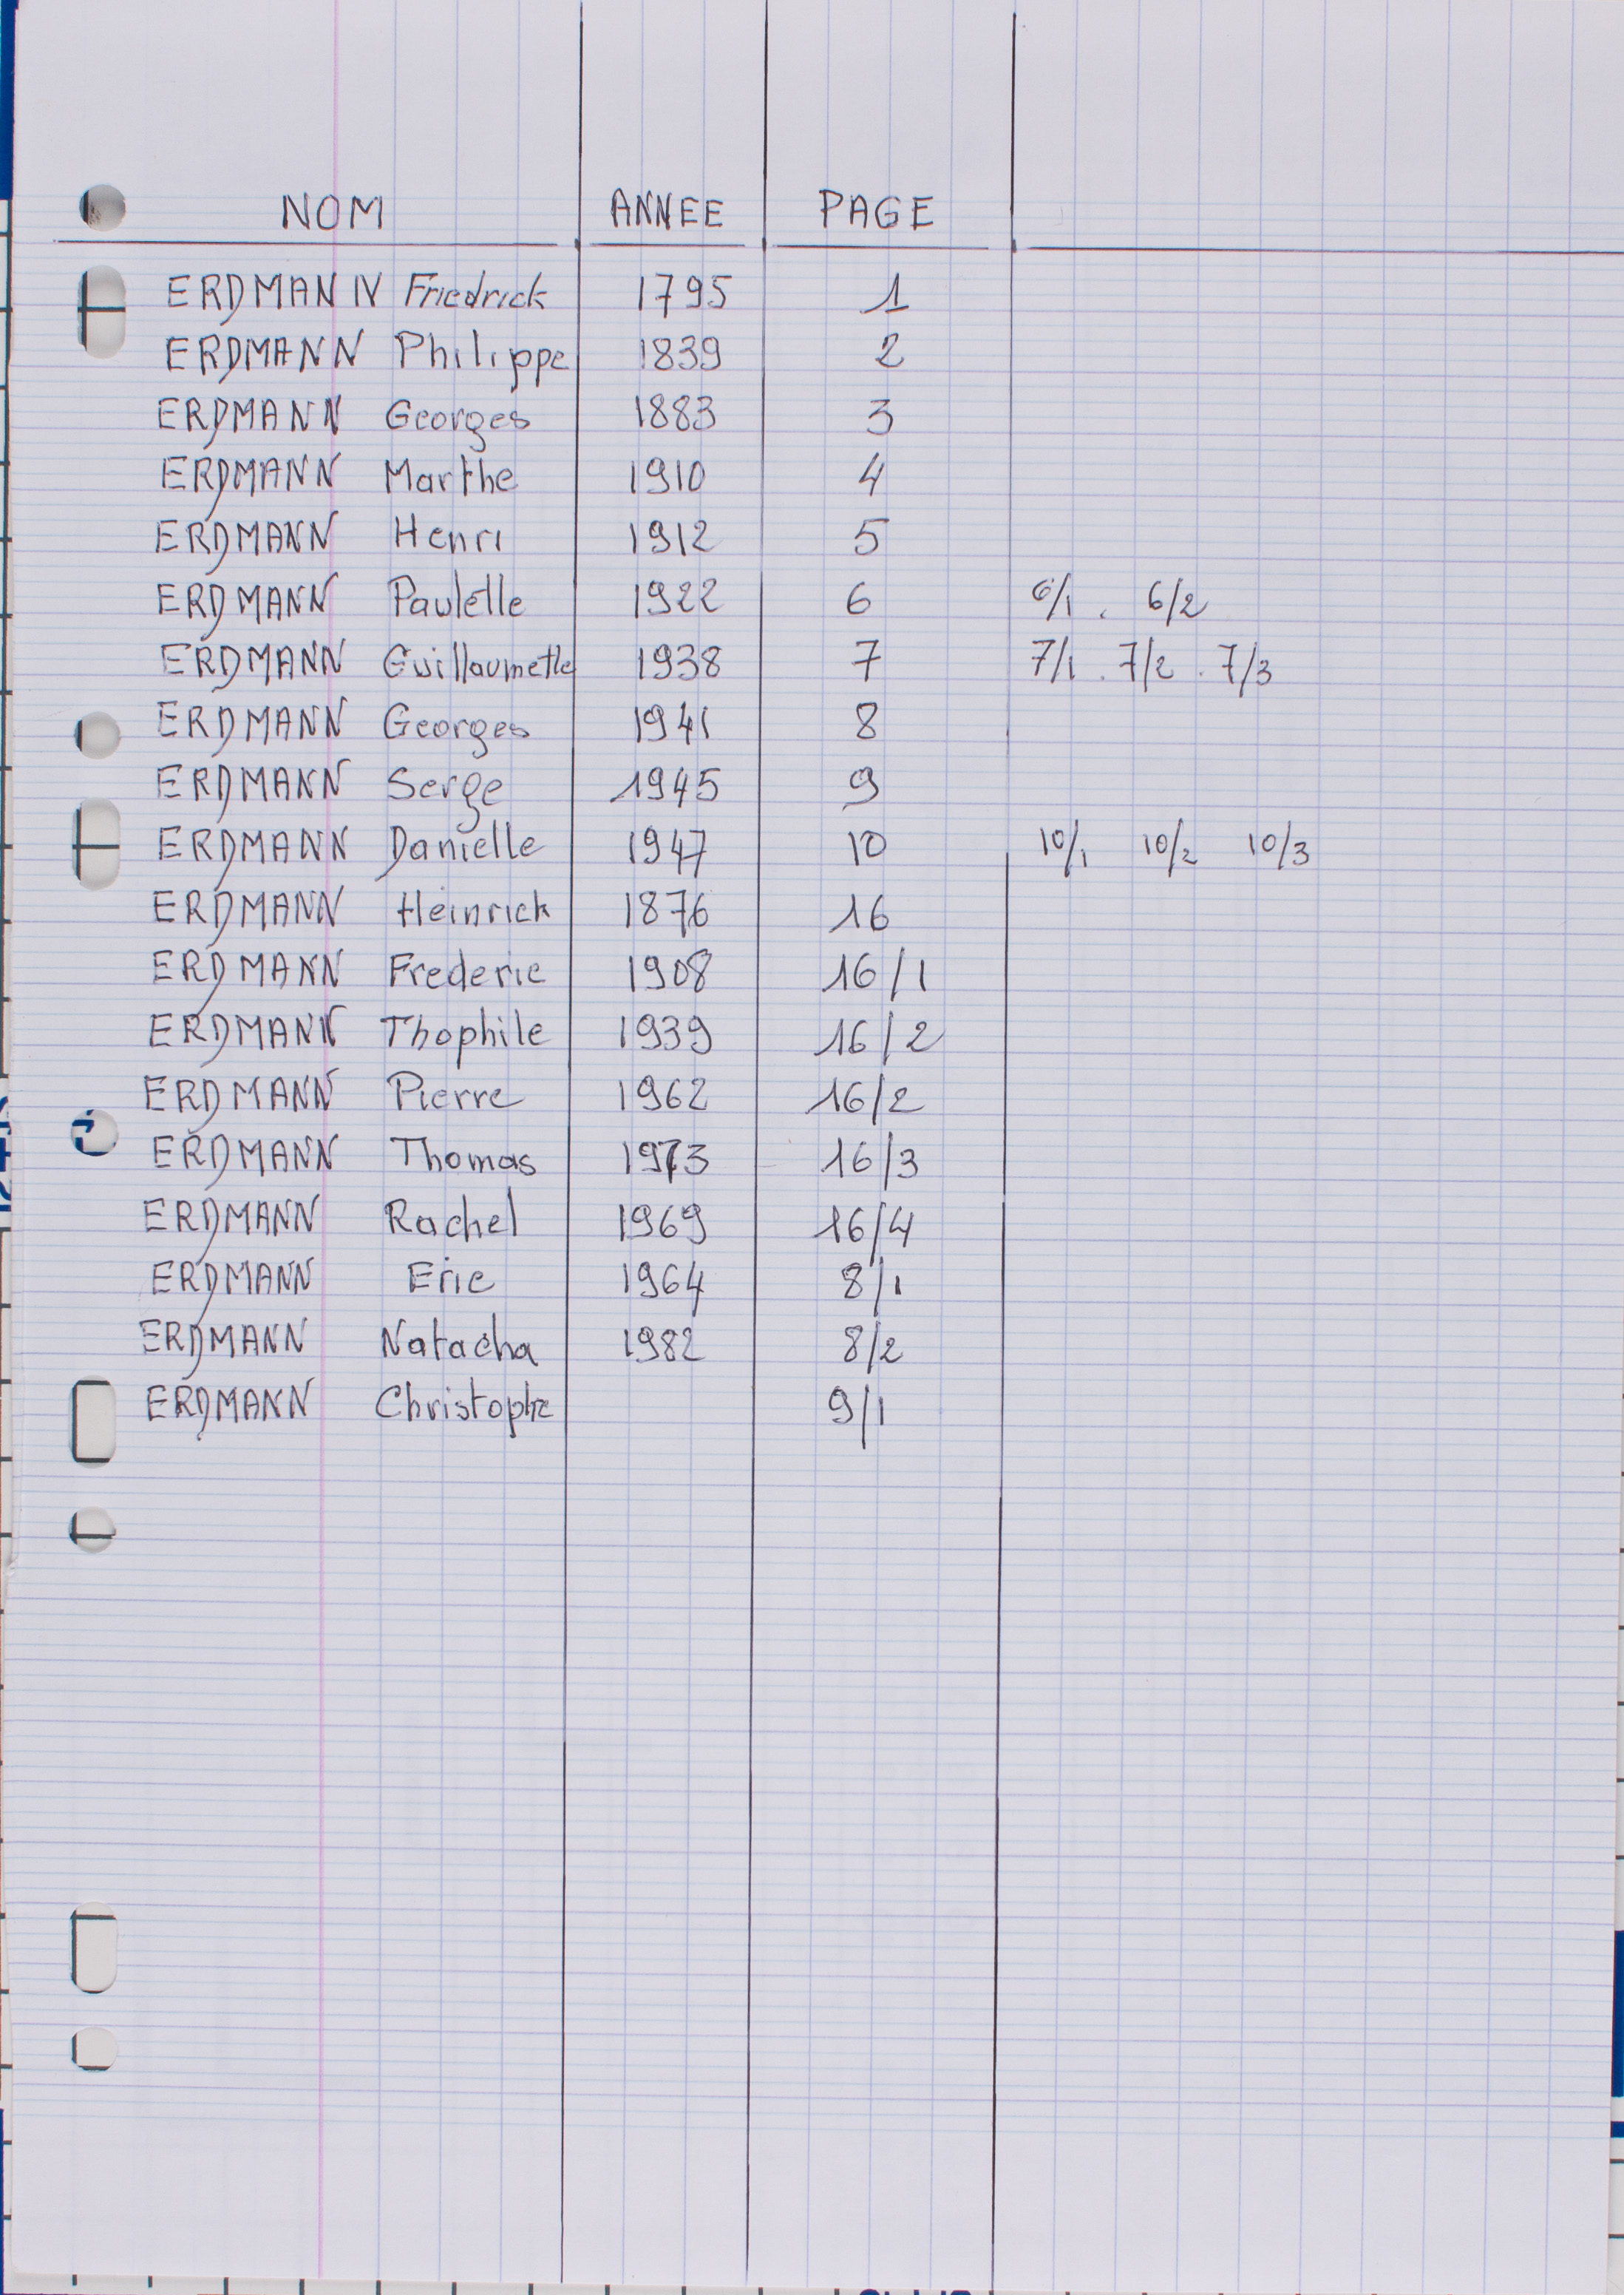 NOM ANNEE PAGE
ERDMANN Friedrick 1795 1
ERDMANN Philippe 1839 2
ERDMANN Georges 1883 3
ERDMANN Marthe 1910 4
ERDMANN Henri 1912 5
ERDMANN Paulette 1922 6 6/1 . 6/2
ERDMANN Guillaumette 1938 7 7/1 . 7/2 . 7/3
ERDMANN Georges 1941 8
ERDMANN Serge 1945 9
ERDMANN Danielle 1947 10 10/1 10/2 10/3
ERDMANN Heinrick 1876 16
ERDMANN Frederic 1908 16/1
ERDMANN Thophile 1939 16/2
ERDMANN Pierre 1962 16/2
ERDMANN Thomas 1973 16/3
ERDMANN Rachel 1969 16/4
ERDMANN Eric 1964 8/1
ERDMANN Natacha 1982 8/2
ERDMANN Christophe 9/1